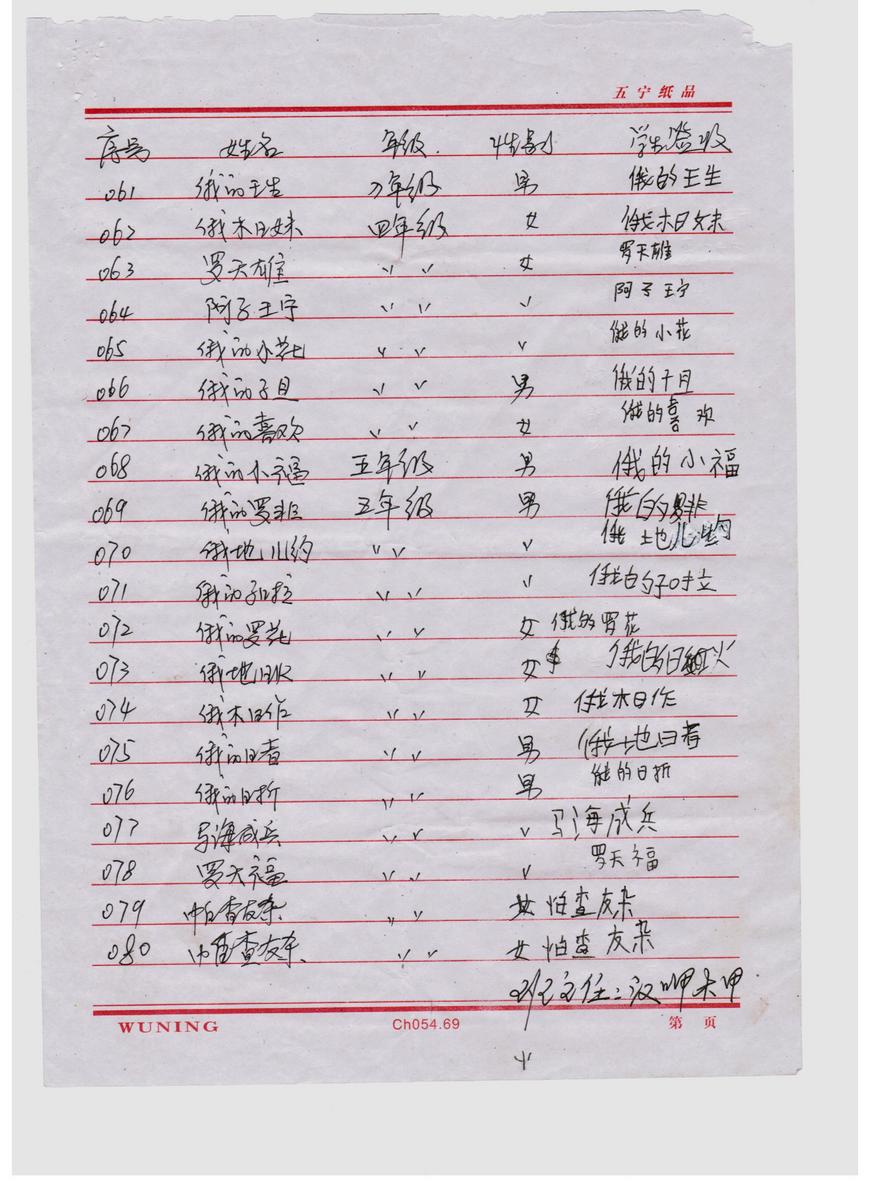 五宁纸品
序号 姓名 年级 性别 学生签收
061 俄的王生 万年级 男 俄的王生
062 俄木日妹 四年级 女 俄木日妹
063 罗天雄 〃 〃 女 罗天雄
064 阿子王宁 〃 〃 〃 阿子王宁
065 俄的小花 〃 〃 〃 俄的小花
066 俄的子且 〃 〃 男 俄的子月
067 俄的喜欢 〃 〃 女 俄的喜欢
068 俄的小福 五年级 男 俄的小福
069 俄的罗非 五年级 男 俄的
070 俄地儿约 〃 〃 〃 俄地儿约
071 俄的子拉 〃 〃 〃 俄的子
072 俄的罗花 〃 〃 女 俄的罗花
073 俄地日 〃 〃 女 俄的日
074 俄木日作 〃 〃 女 俄木日作
075 俄的日者 〃 〃 男 俄地日者
076 俄的日折 〃 〃 男 能的日折
077 马海成兵 〃 〃 〃 马海成兵
078 罗天福 〃 〃 〃 罗天福
079 帕查友杂 〃 〃 女 怕查友杂
080 查友杂 〃 〃 女 怕查友杂
班主任：木甲
WUNING Ch054.69 第 页